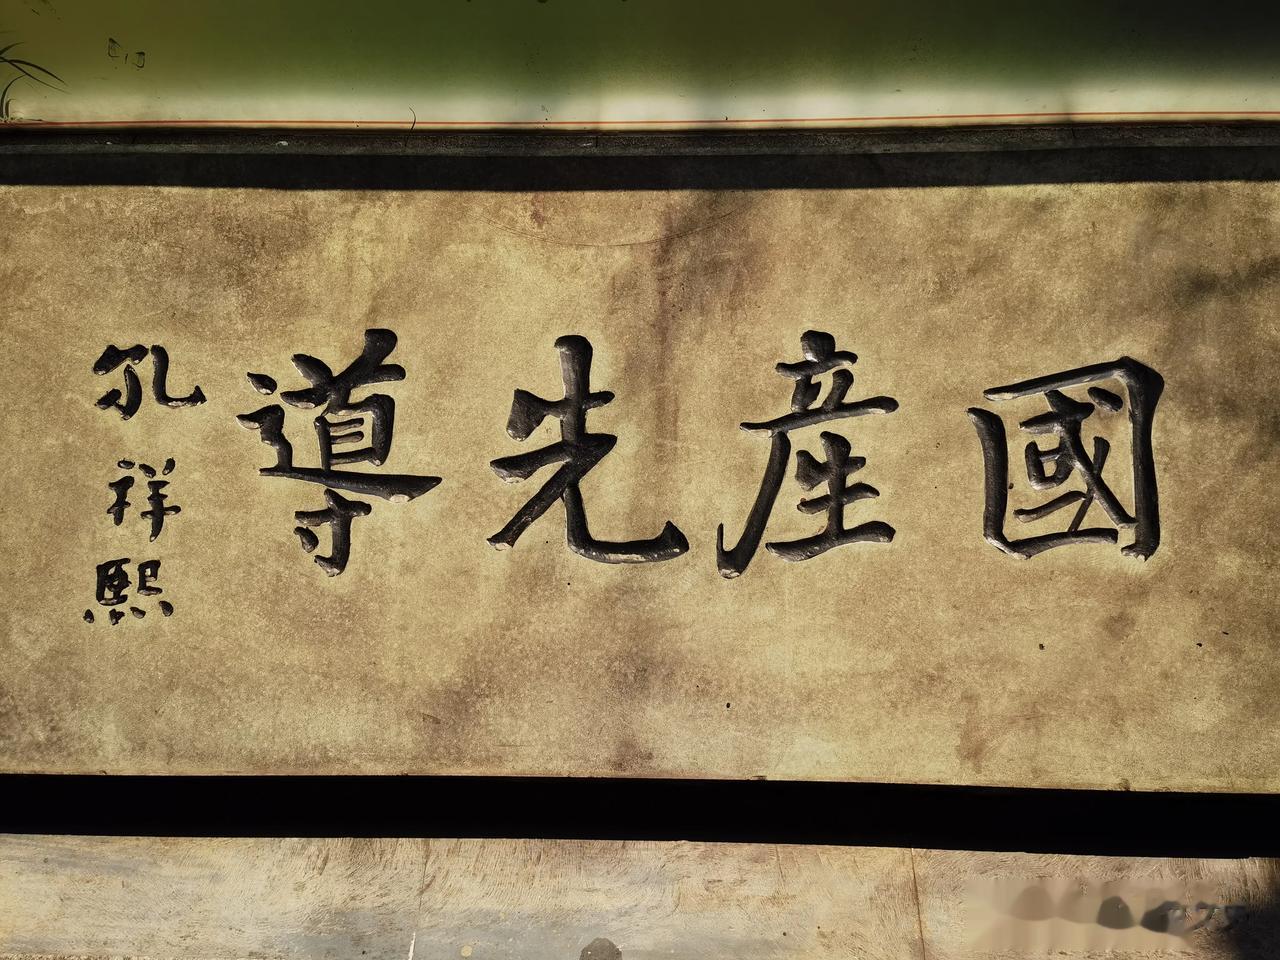 國產先導
孔祥熙